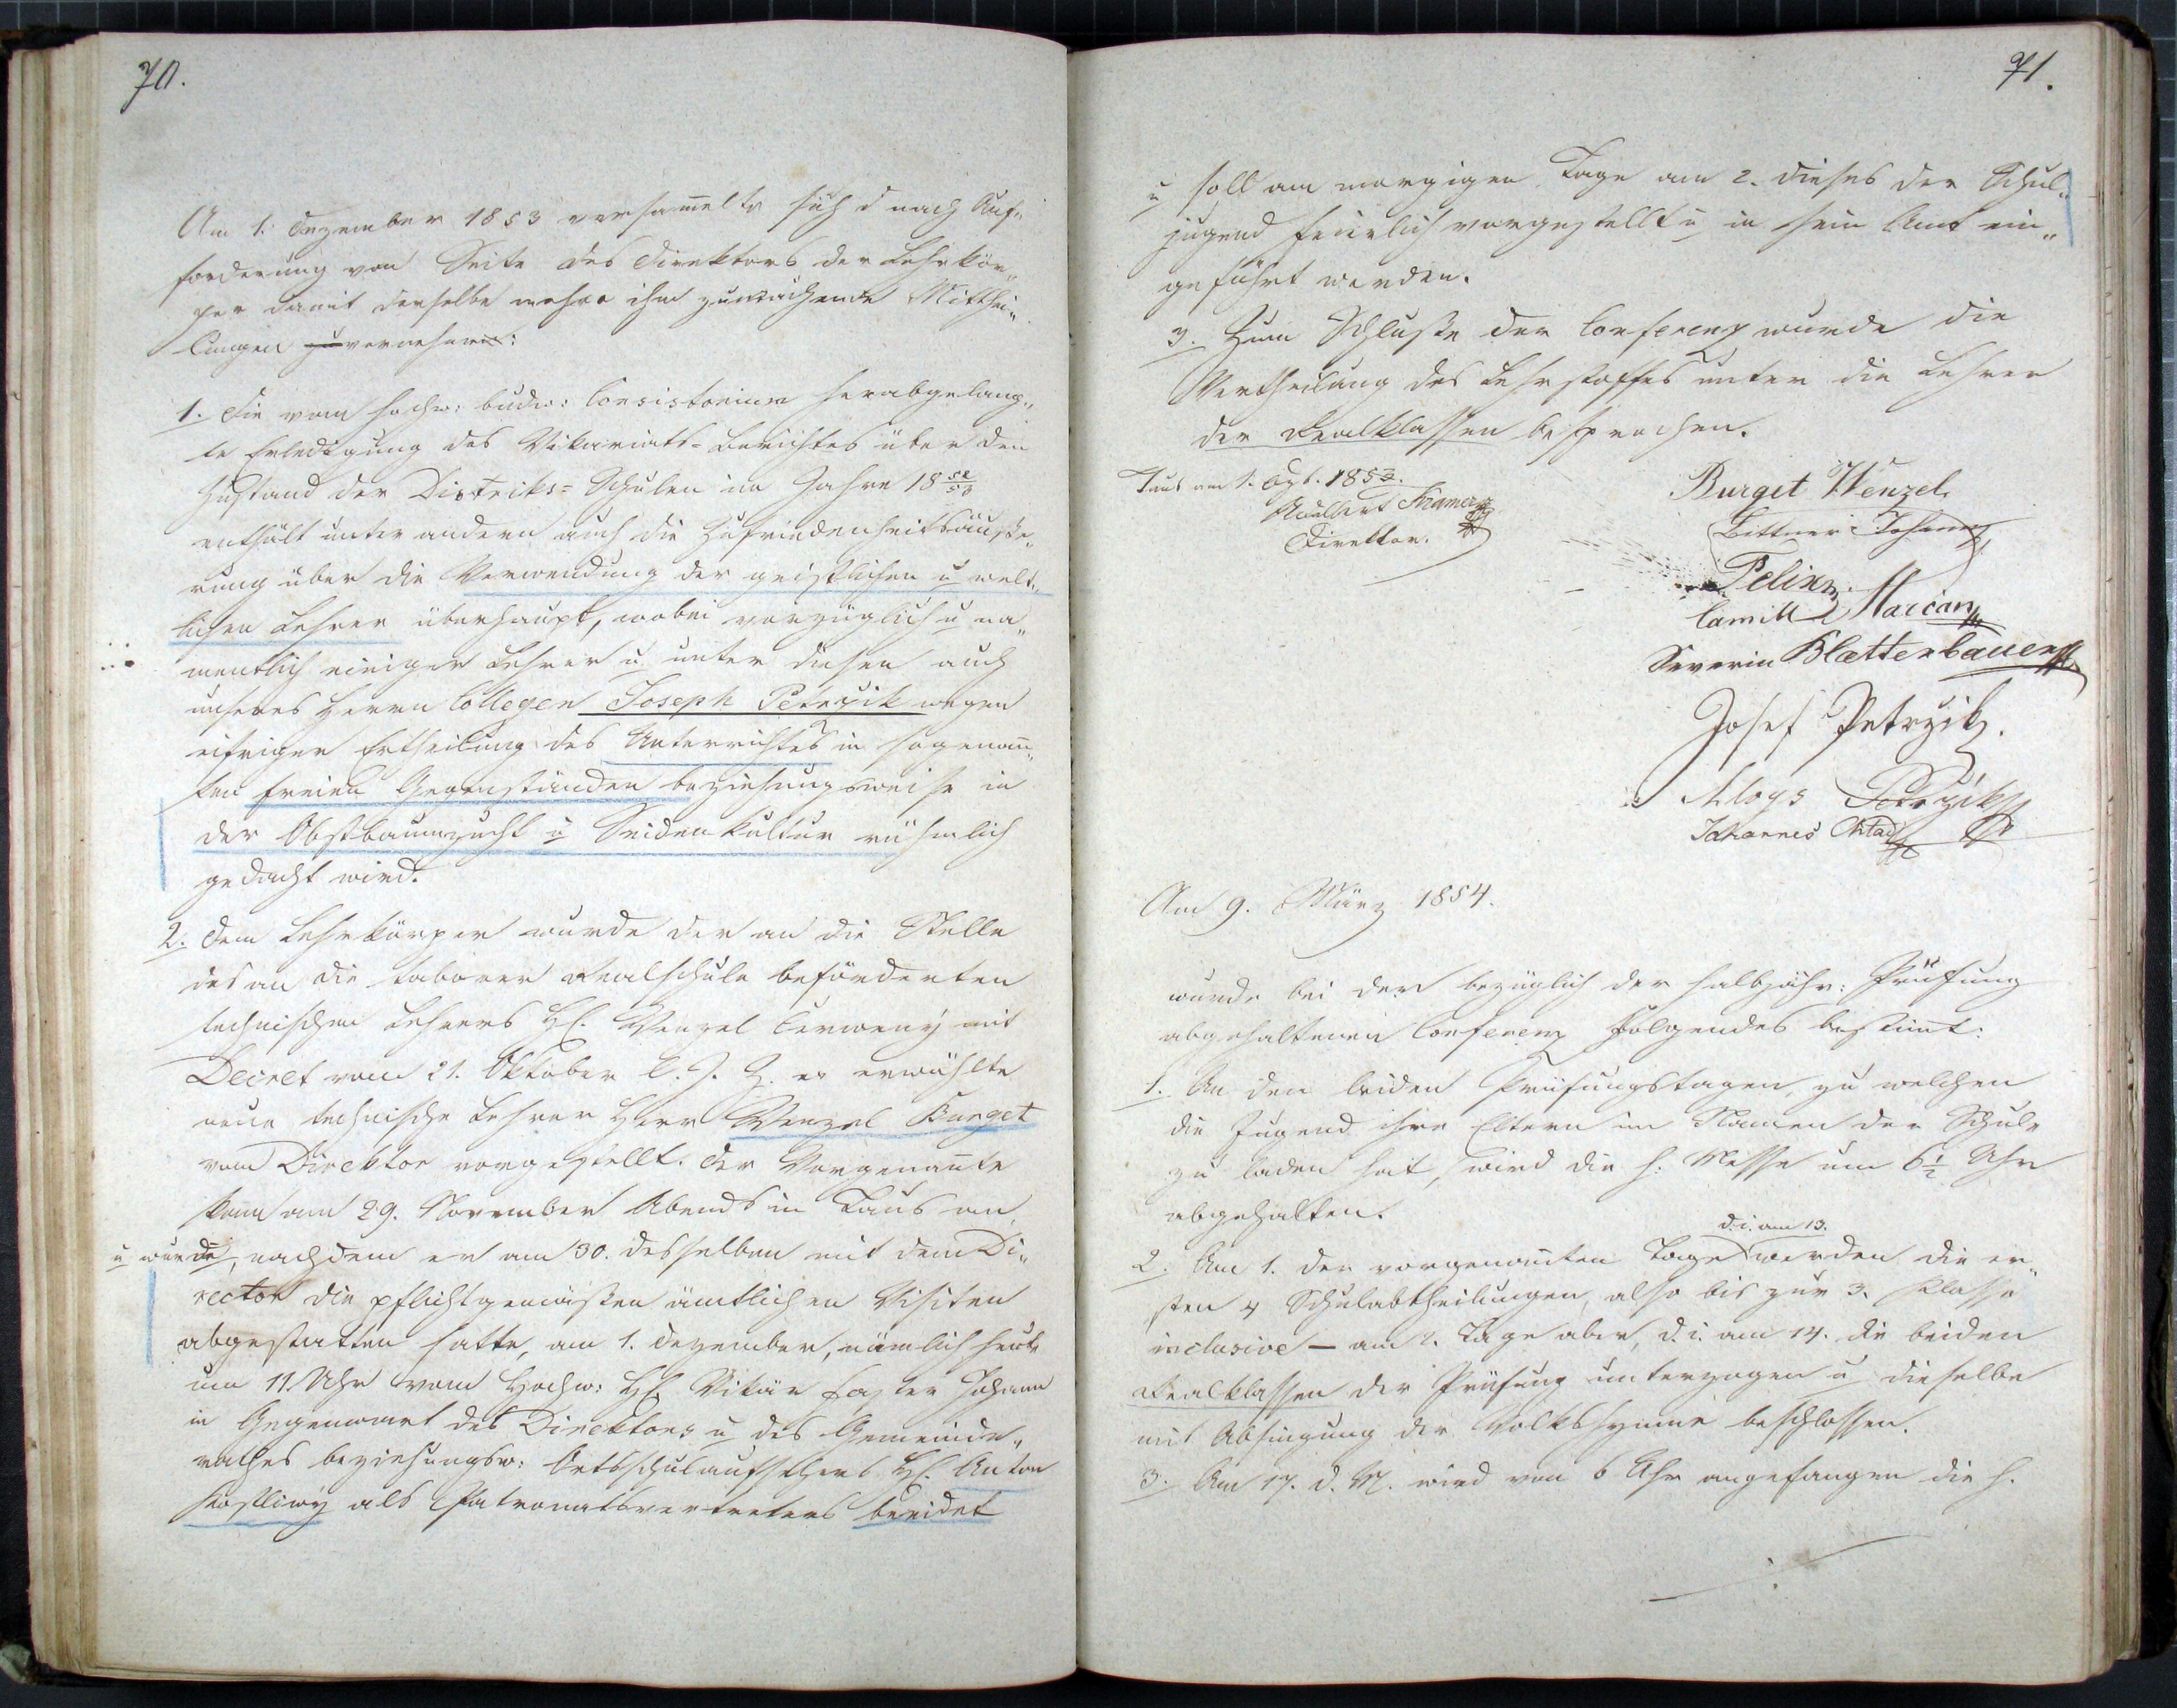 70.
Am 1. Dezember 1853 versam̅elte sich nach Auf„
forderung von Seite des Direktors der Lehrkör„
per damit derselbe mehre ihm zumachende Mitthei„
lungen zu vernehmen:
1. Die vom hochw: budw: Consistorium herabgelang„
te Erledigung des Vikariats-Berichtes über den
Zustand der Distrikts-Schulen im Jahre 18 52/53
enthält unter andern auch die Zufriedenheitsäuße„
rung über die Verwendung der geistlichen u welt„
lichen Lehrer überhaupt, wobei vorzüglich u na„
mentlich einiger Lehrer u unter diesen auch
unseres Herrn Collegen Joseph Petrzik wegen
eifriger Ertheilung des Unterrichtes in sogenan̅„
ten freien Gegenständen beziehungsweise in
der Obstbaumzucht u Seidenkultur rühmlich
gedacht wird.
2. Dem Lehrkörper wurde der an die Stelle
des an die taborer Realschule beförderten
technischen Lehrers H. Wenzel Cerweny mit
Decret vom 21. Oktober l. J. Z. erwählte
neue technische Lehrer Herr Wenzel Burget
vom Direktor vorgestellt. Der Vorgenan̅te
kam am 29. November Abends in Taus an,
u wurde, nachdem er am 30. desselben mit dem Di„
rector die pflichtgemäßen ämtlichen Visiten
abgestatten hatte, am 1. Dezember, nämlich heute
um 11 Uhr vom Hochw: H. Vikär Faster Johann
in Gegenwart des Direktors u des Gemeinde„
rathes beziehungsw: Ortsschulaufsehers H. Anton
Kostliwy als Patronatsvertreters beeidet
71.
u soll am morgigen Tage am 2. dieses der Schul„
jugend feierlich vorgestellt u in sein Amt ein„
geführt werden.
3. Zum Schluße der Conferenz wurde die
Vertheilung des Lehrstoffes unter die Lehrer
der Realklassen besprochen.
Taus am 1. 1853.
Adalbert
Direktor.
Burget Wenzel
Bittner Johann
Felix
Camill Marian
Severin Blætterbauer
Josef Petrzik.
Aloys Petrzik
Johannes
Am 9. März 1854.
wurde bei der bezüglich der halbjähr: Prüfung
abgehaltenen Conferenz Folgendes bestim̅t:
1. An den beiden Prüfungstagen, zu welchen
die Jugend ihre Eltern im Namen der Schule
zu laden hat, wird die h: Messe um 6½ Uhr
abgehalten.
2. Am 1. der vorgenan̅ten Tage d. i. am 13. werden die er„
sten 4 Schulabtheilungen, also bis zur 3. Klasse
inclusive — am 2. Tage aber, d. i. am 14. die beiden
Realklassen der Prüfung unterzogen u dieselbe
mit Absingung der Volkshymne beschlossen.
3. Am 17. d. M. wird von 6 Uhr angefangen die h.